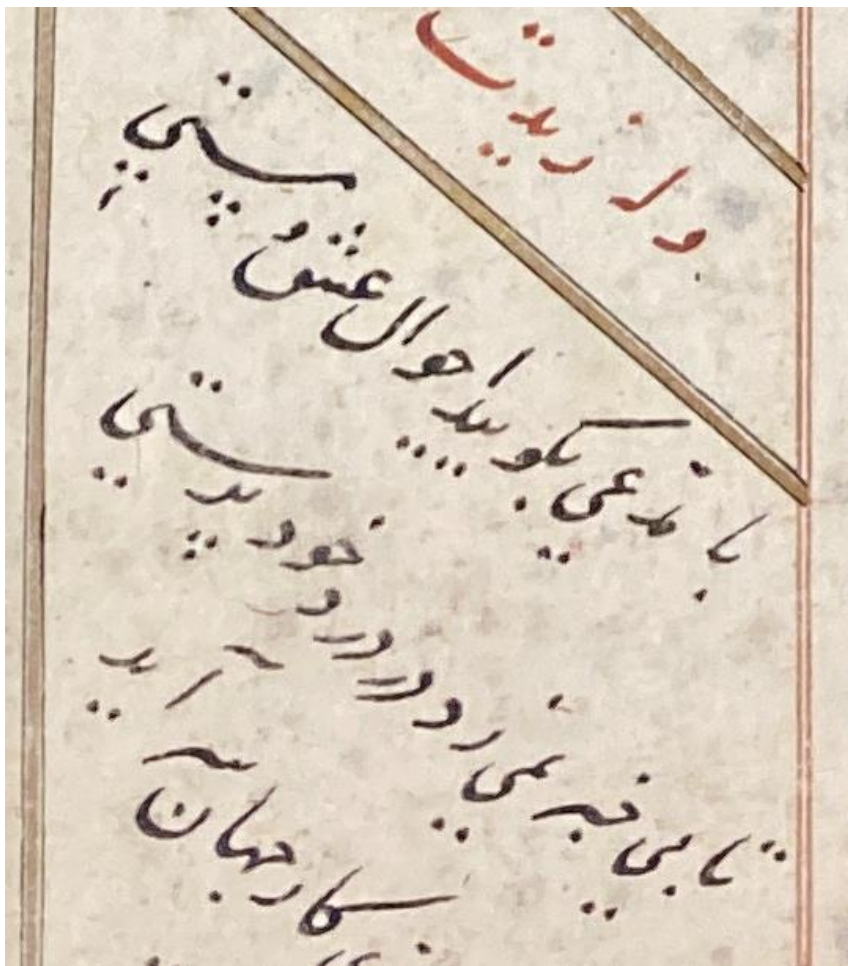 وله زیدت
با مدعی بگویید احوال عشق و مستی
تا بی خبر نمیرد در درد خود پرستی
کار جهان سر آید